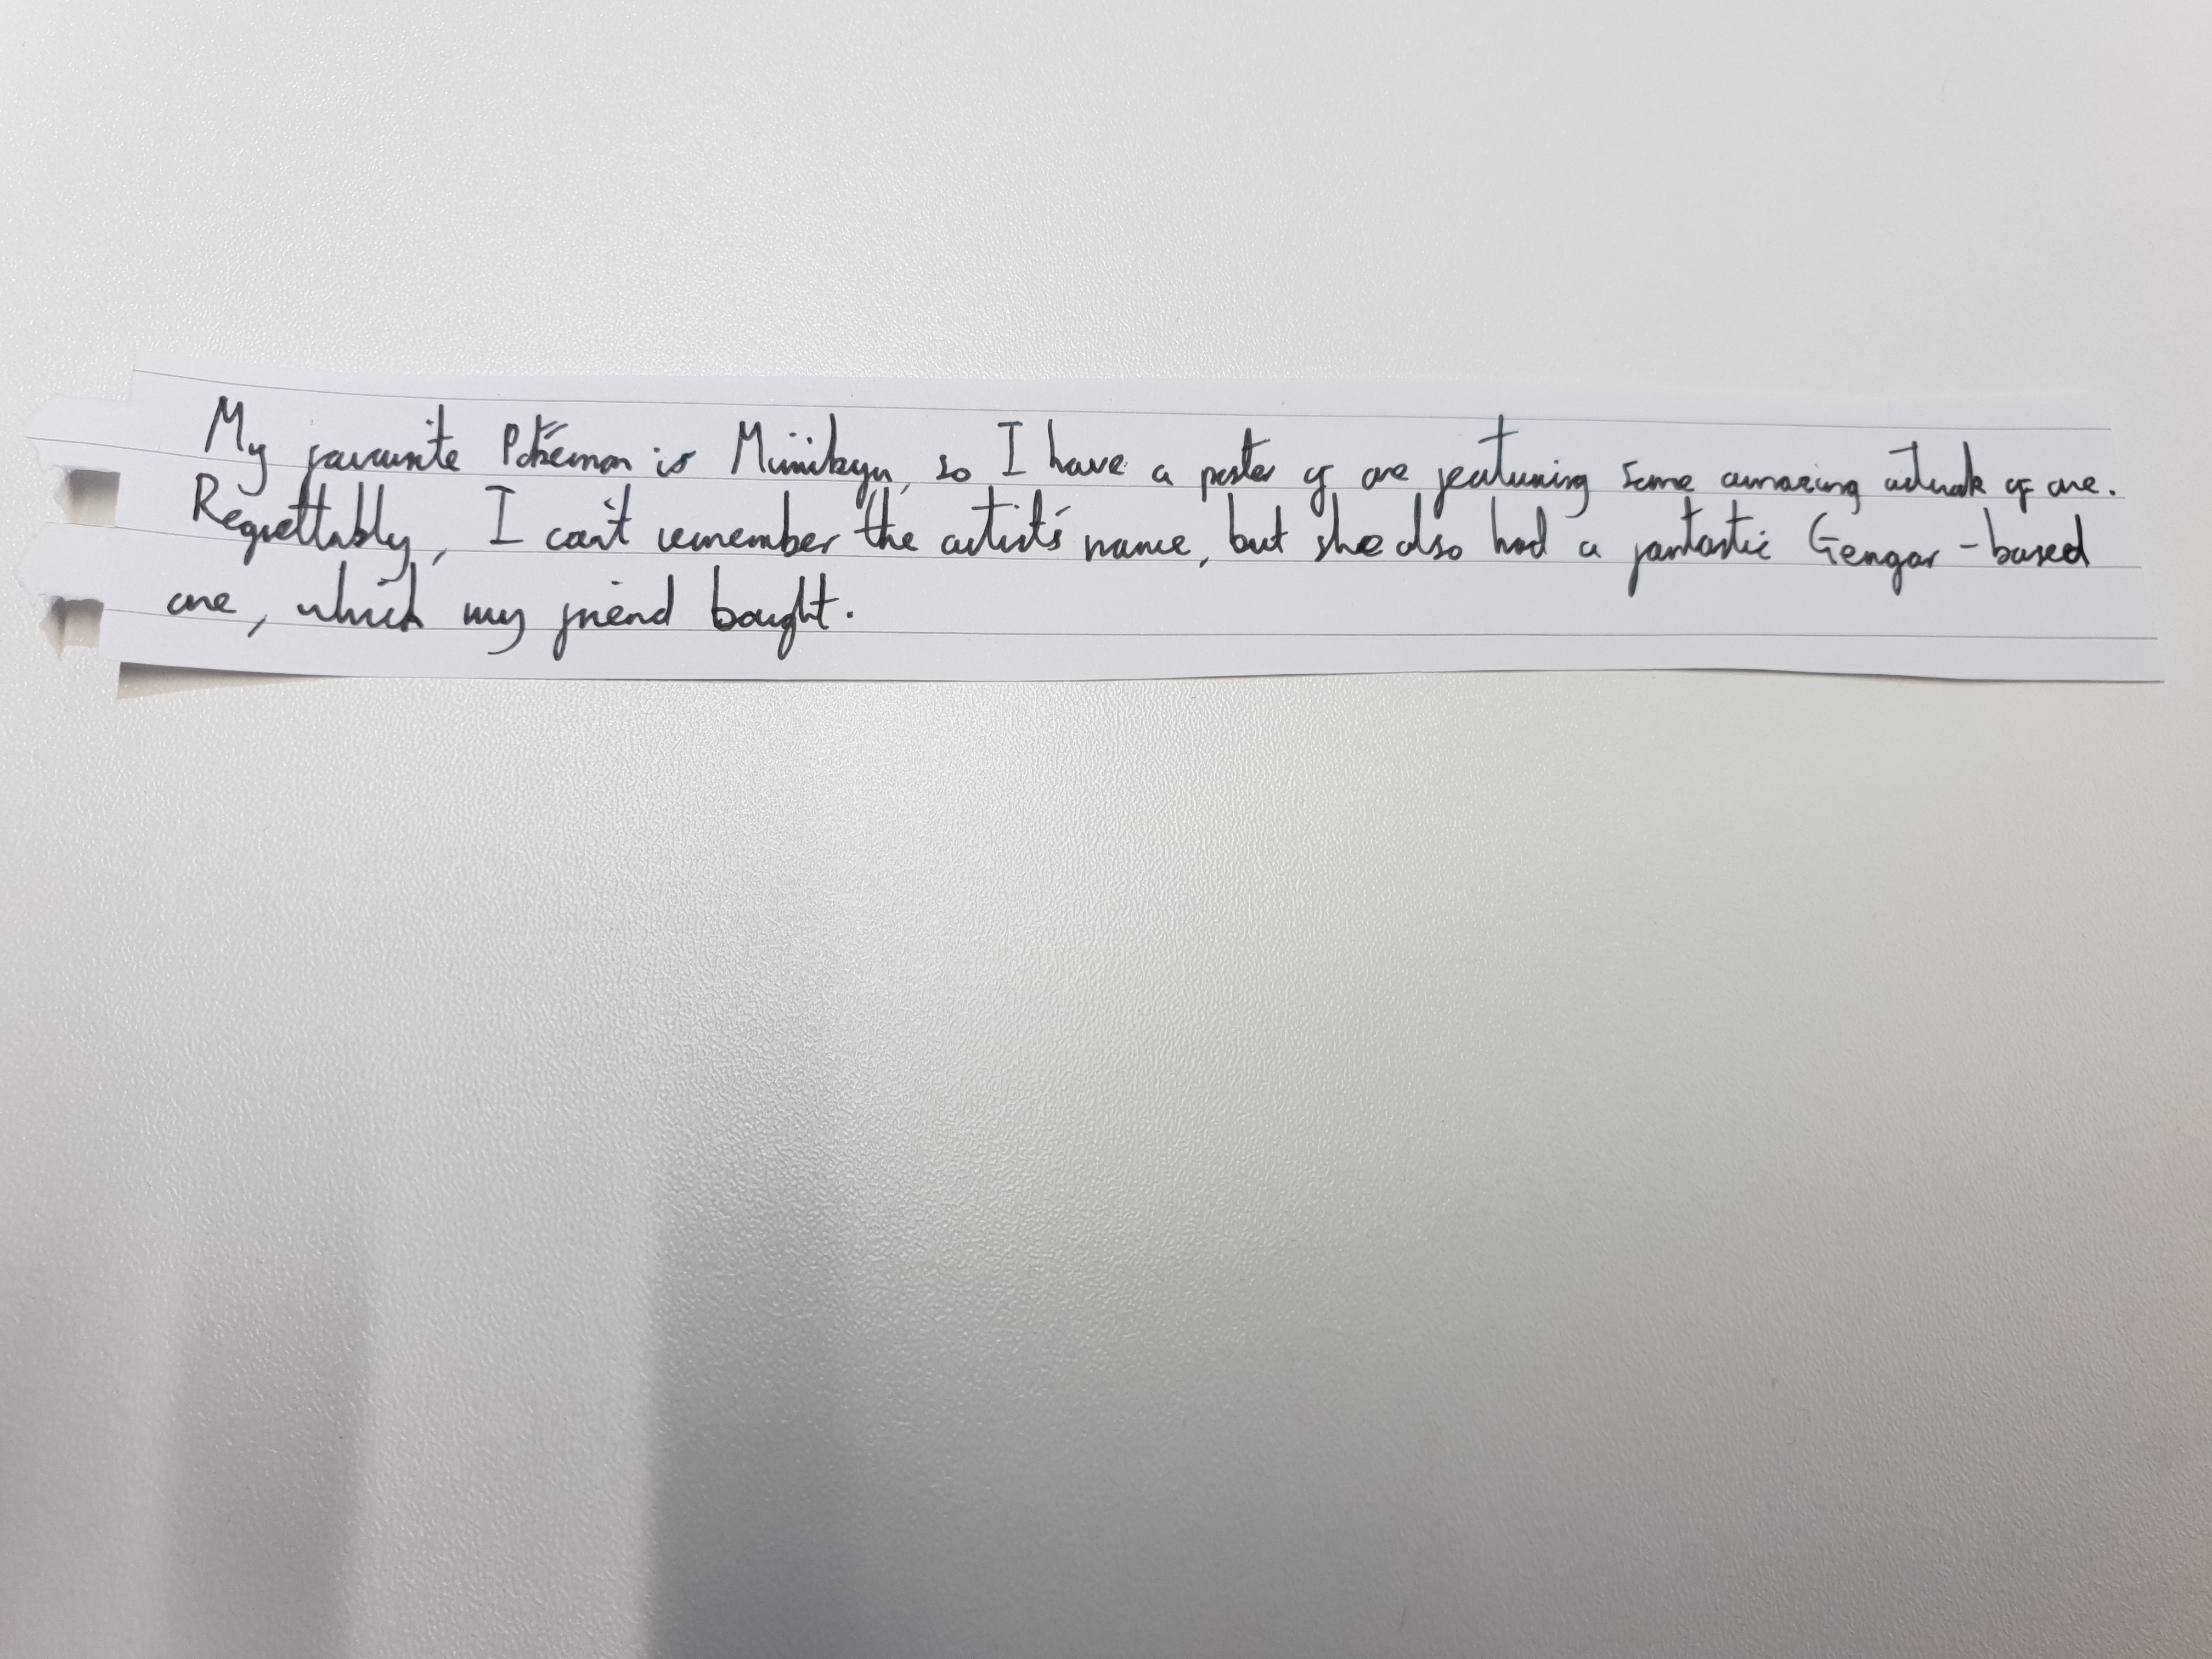 My favourite Pokémon is Mimikyu, so I have a poster of one featuring some amazing artwork of one.
Regrettably, I can't remember the artist's name, but she also had a fantastic Gengar-based
one, which my friend bought.